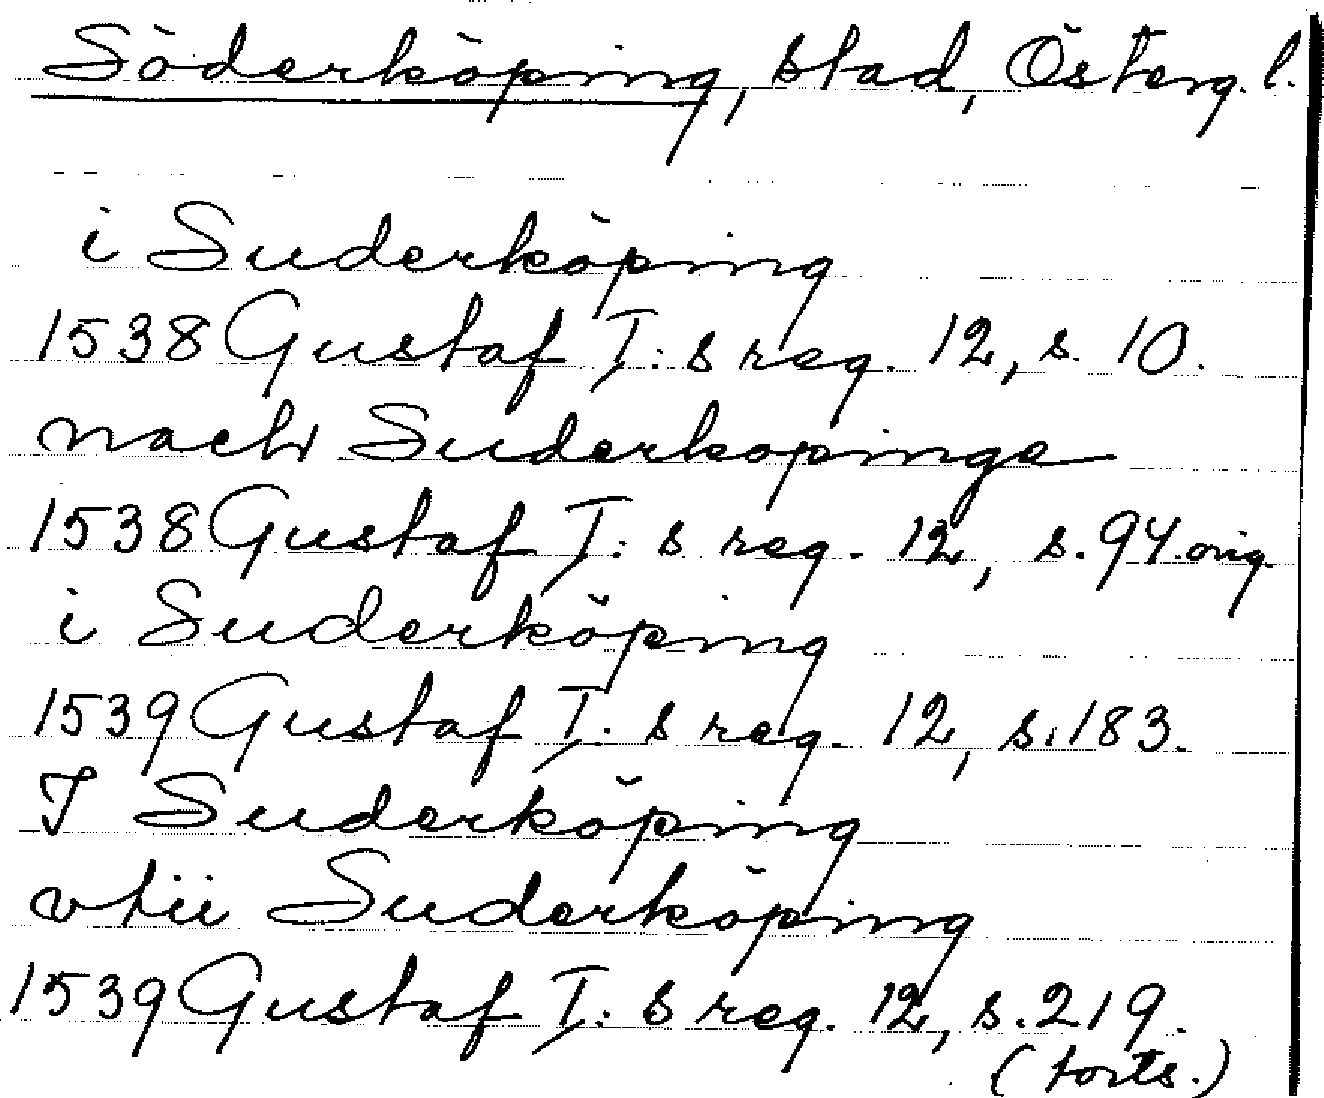 Söderköping, stad, Österg. l.
i Suderköping
1538 Gustaf I:s reg. 12, s. 10.
nach Suderkopinge
1538 Gustaf I:s reg. 12, s. 94. orig.
i Suderköping
1539 Gustaf I:s reg. 12, s. 183.
I Suderköping
vtii Suderköping
1539 Gustaf I:s reg. 12, s. 219.
(forts.)